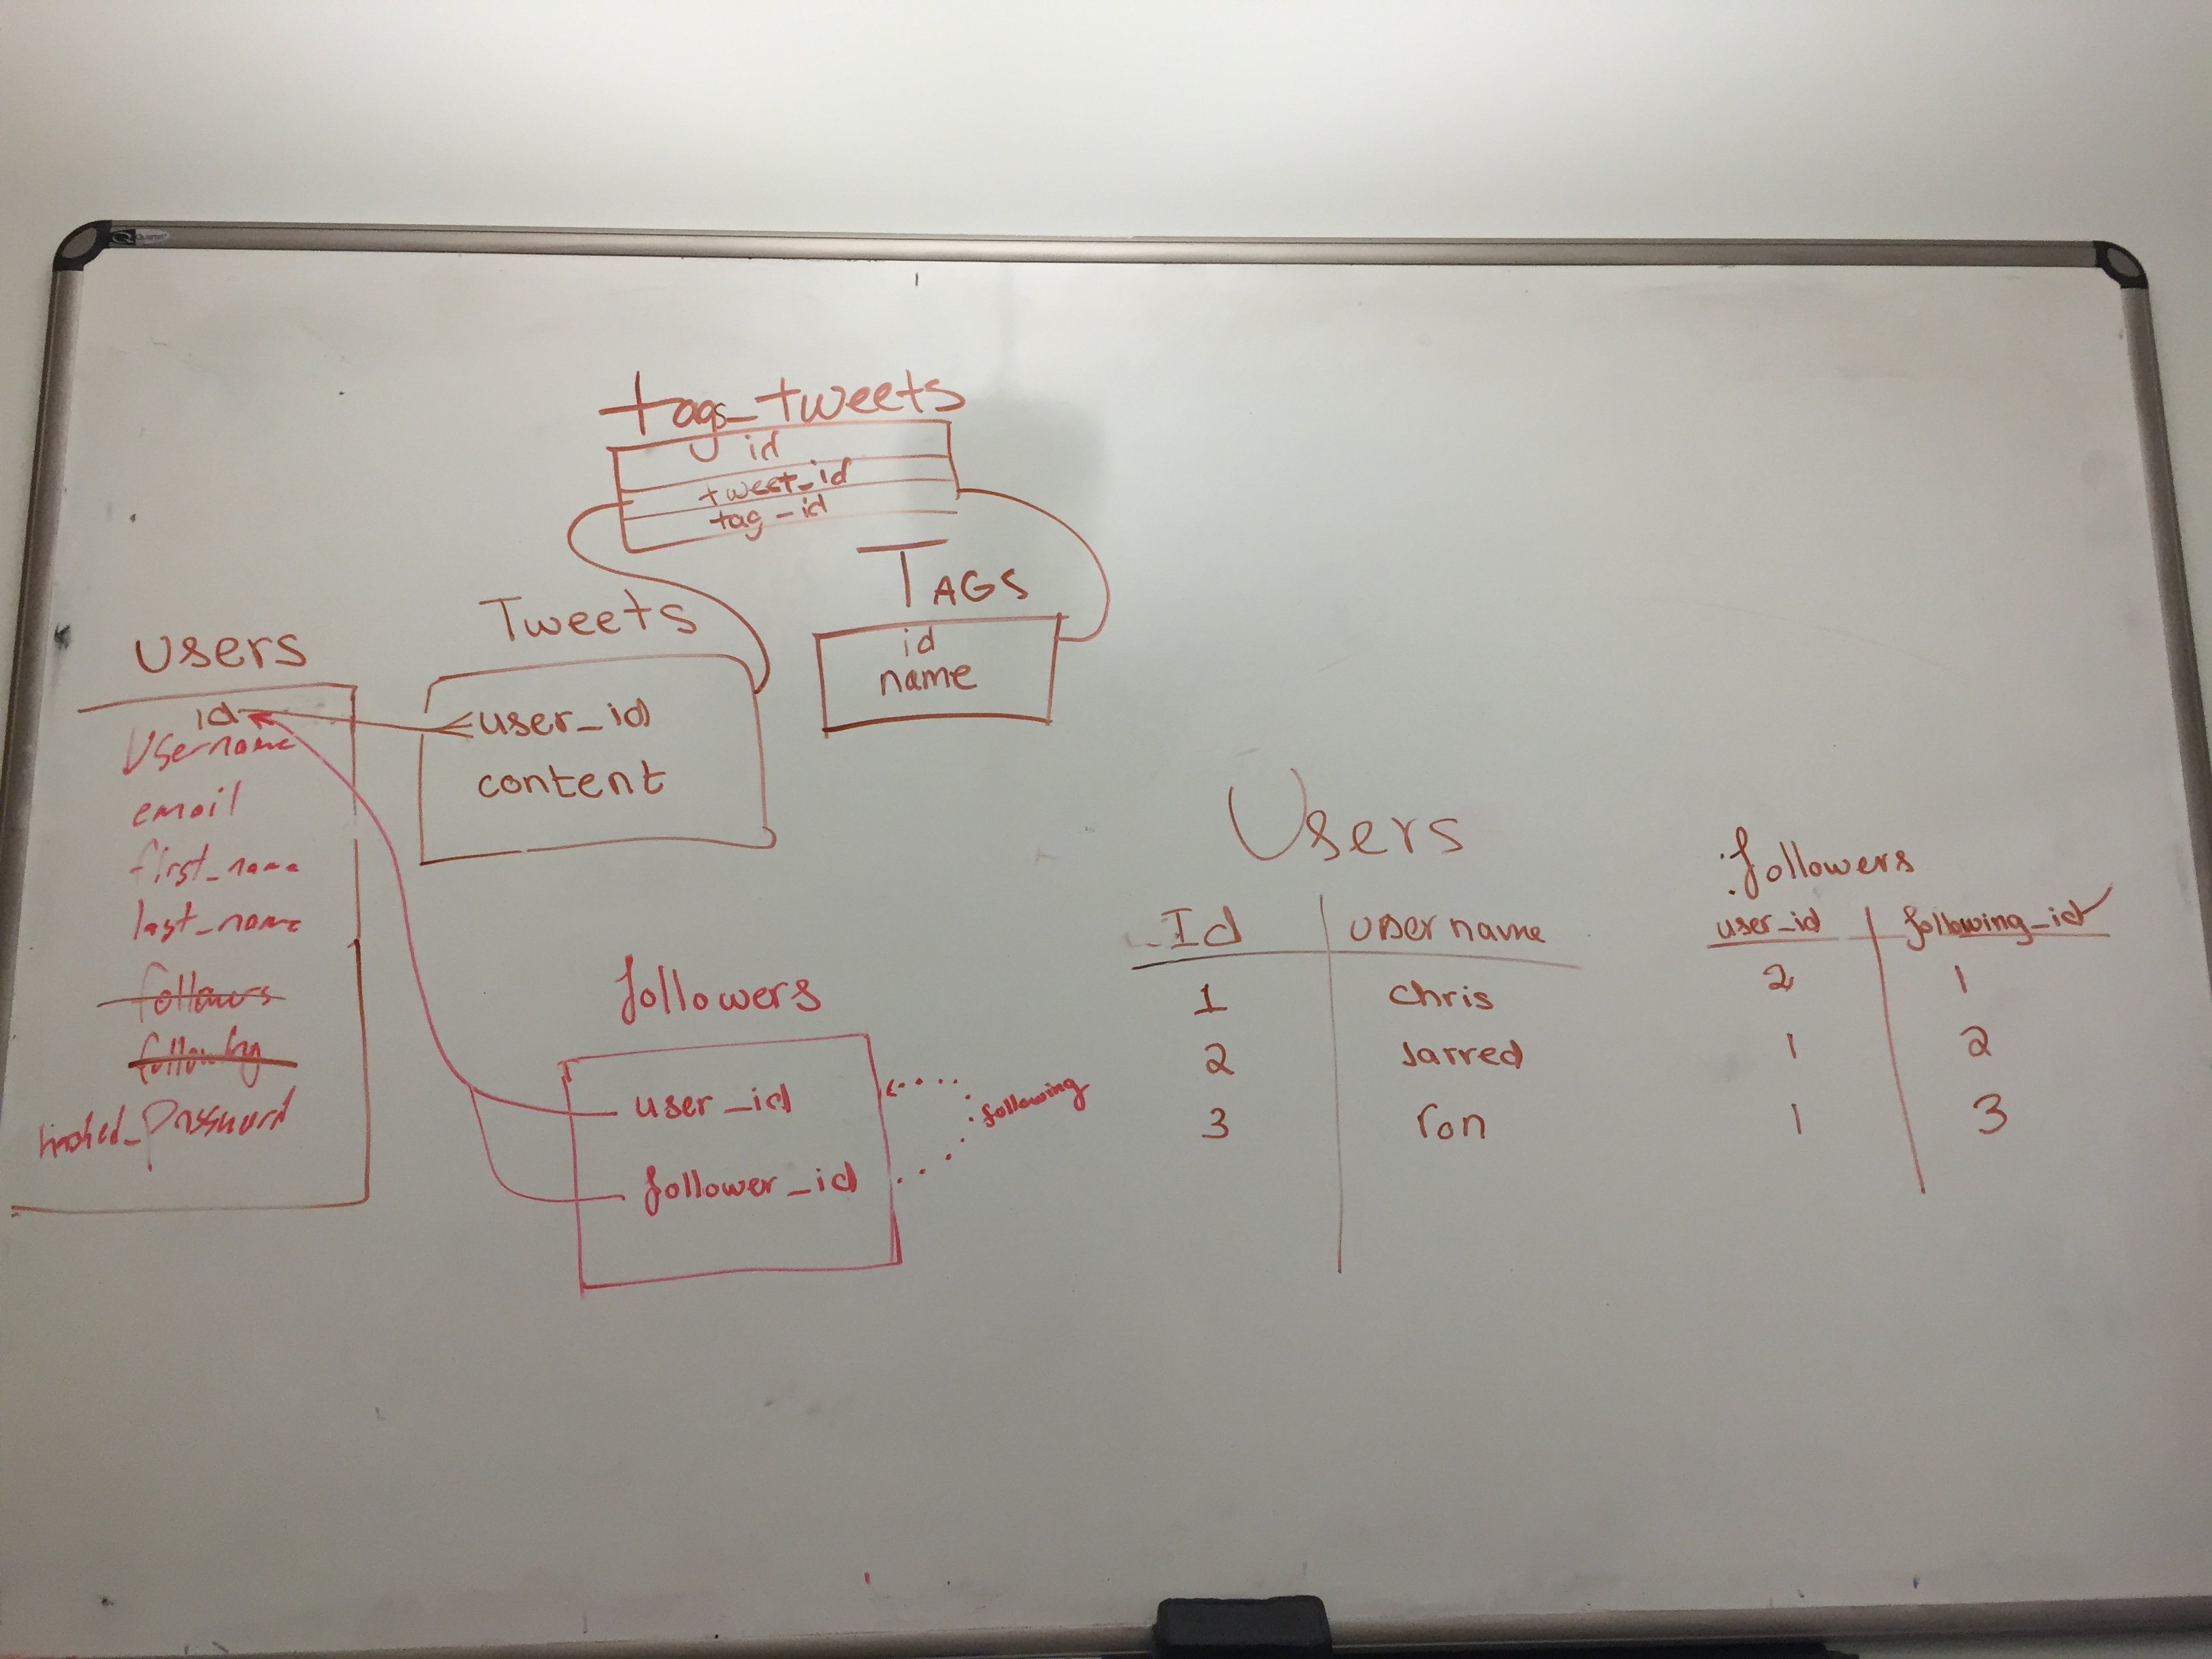 tags_tweets
id
tweet_id
tag_id
TAGS
id
name
Tweets
user_id
content
users
id
Username
email
first_name
last_name
followers
following
hashed_Password
followers
user_id
follower_id
following
Users
Id username
1 chris
2 Jarred
3 ron
followers
user_id following_id
2 1
1 2
1 3